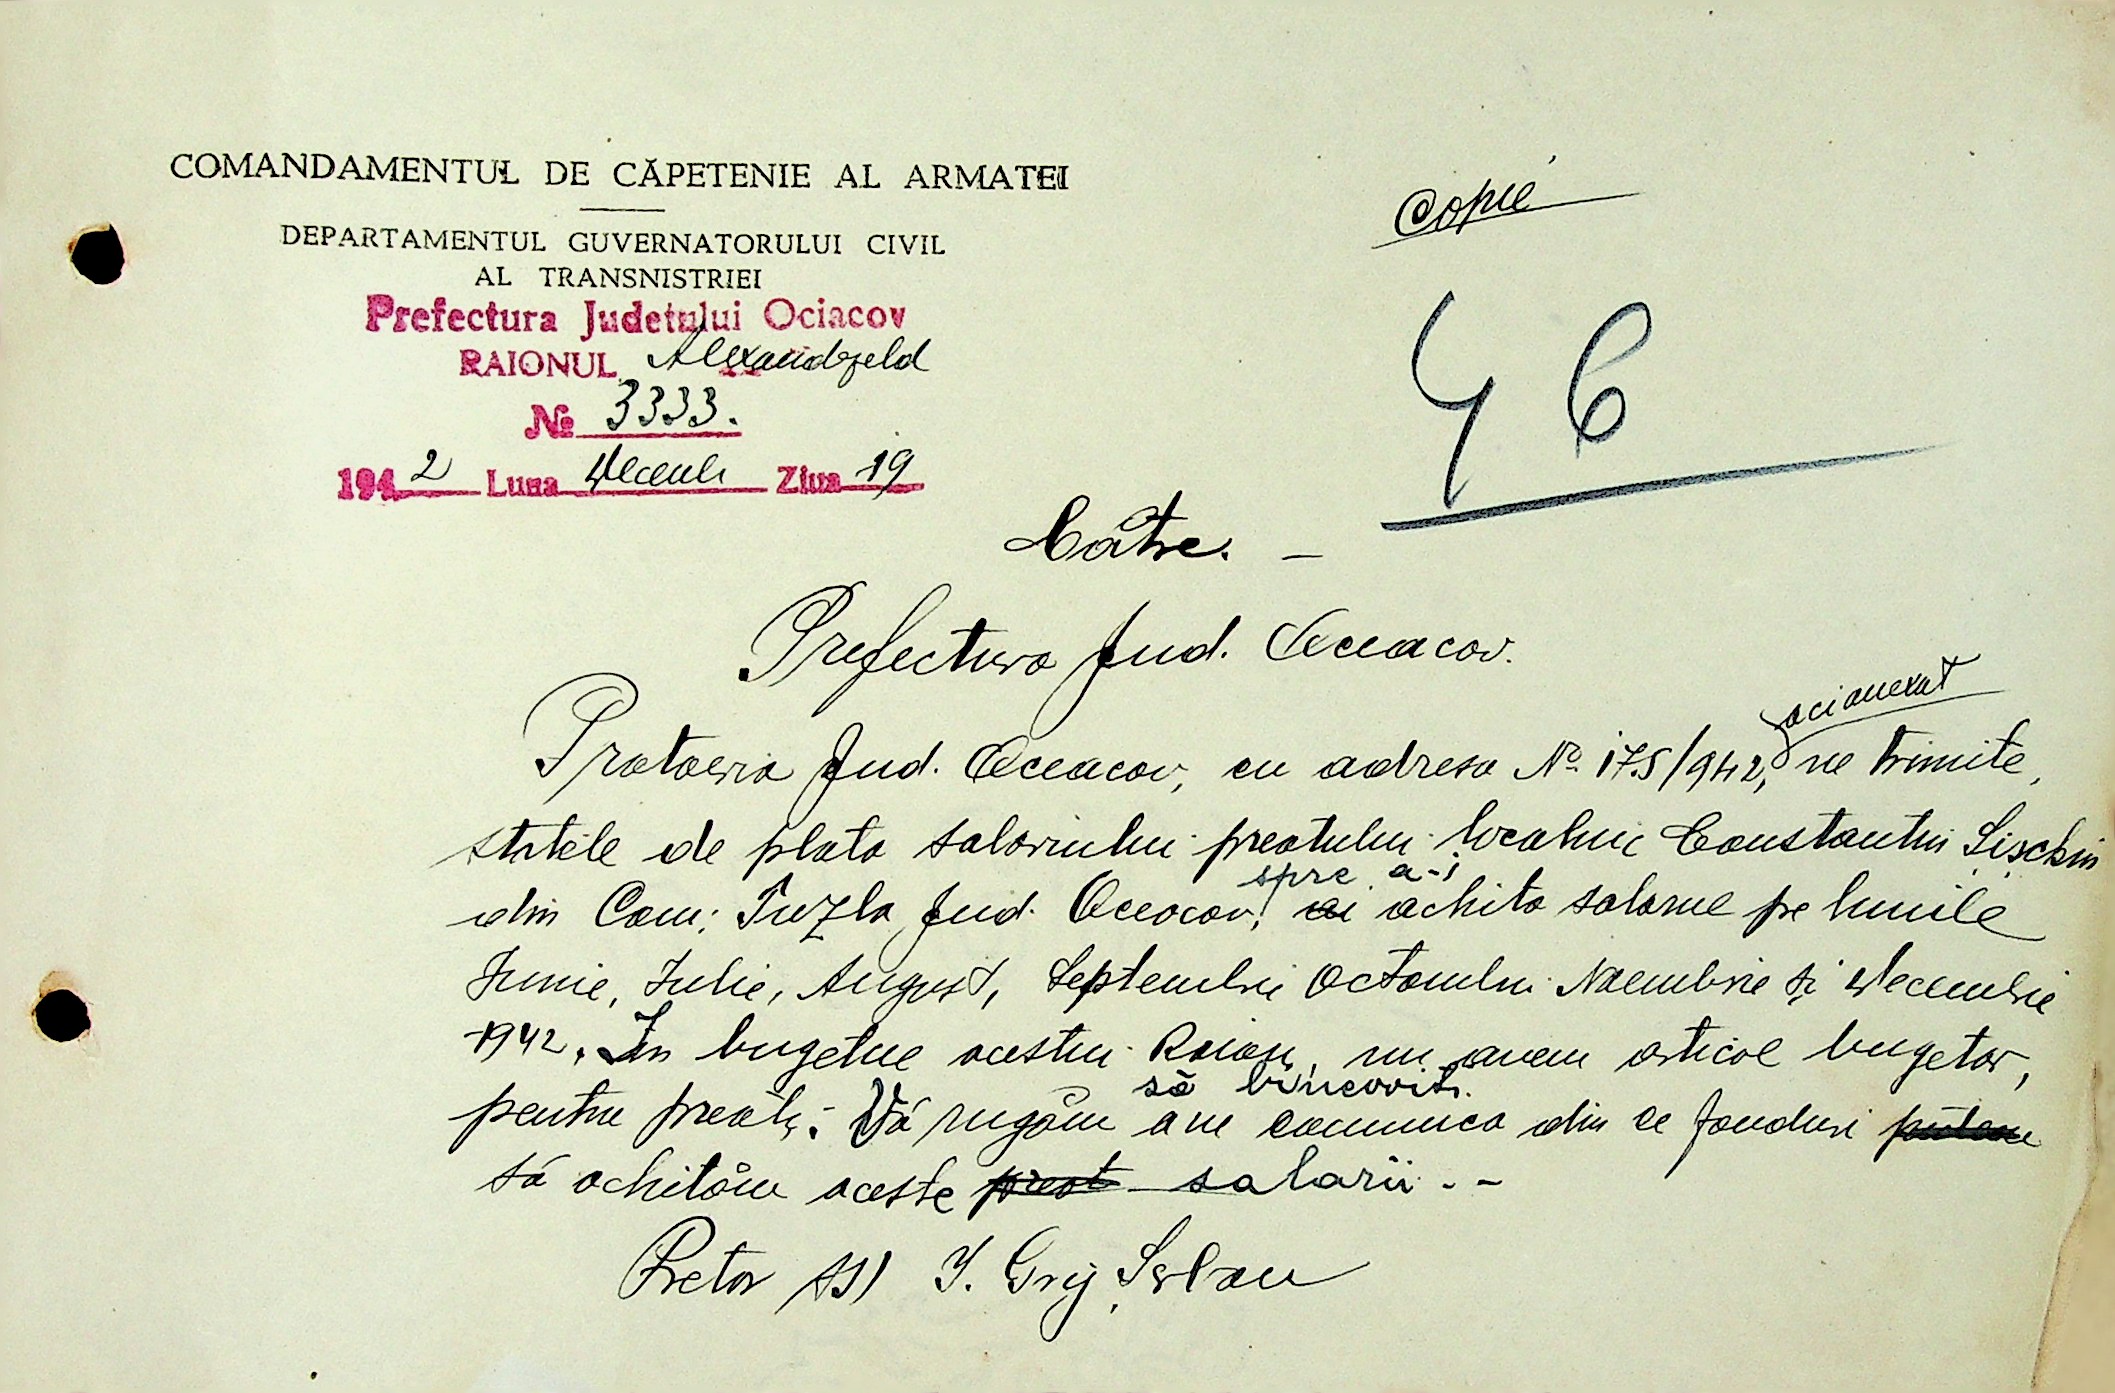 COMANDAMENTUL DE CĂPETENIE AL ARMATEI
DEPARTAMENTUL GUVERNATORULUI CIVIL
AL TRANSNISTRIEI
Prefectura Judetului Ociacov
RAIONUL Alexandrfeld
№ 3333.
1942 Luna Decemb Ziua 19
Copie
46
Către. –
Prefectura Jud. Oceacov.
acianexat
Protoeria Jud. Oceacov, cu adresa No. 175/942, ne trimite,
statele de plata salariului preotului localnic Constantin Șișchin
spre a-i
din Com: Tuzla Jud. Oceacov, ai achita salariul pe lunile
Iunie, Iulie, August, Septembrie Octombrie Noembrie și Decembrie
1942. In bugetul acestui Raion, nu avem articol bugetar,
să binevoiți
pentru preoți. Vă rugăm a ne comunica din ce fonduri putem
să achităm aceste preot salarii. –
Pretor ss) I. Grij Șerban